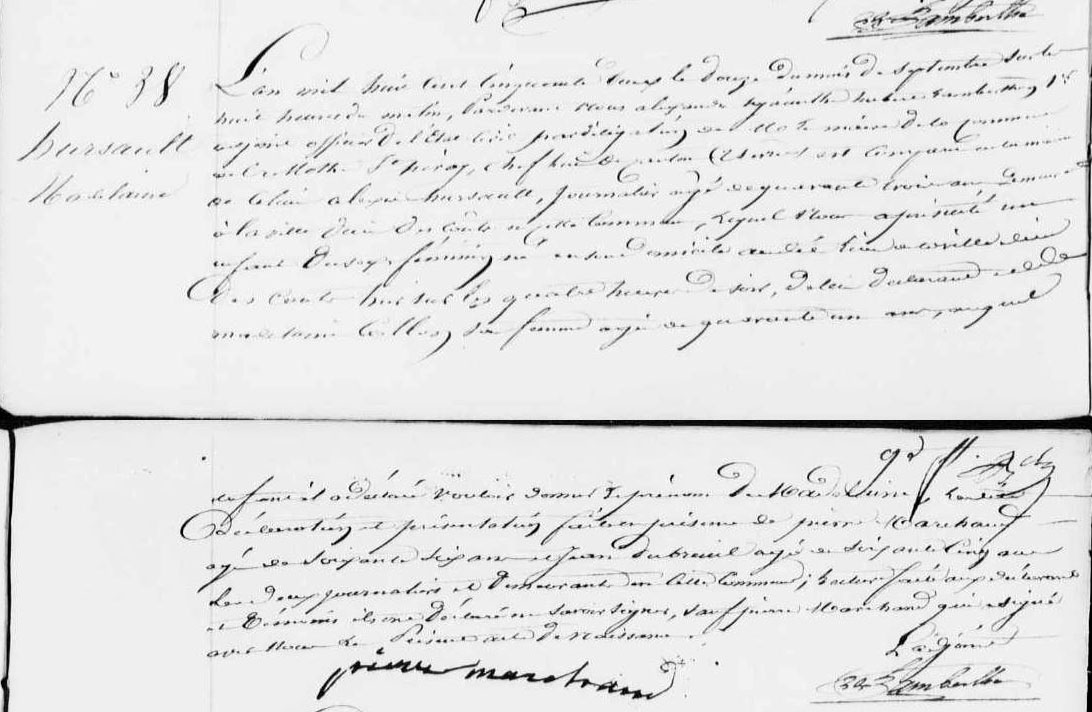 Lambertha
N° 38
hursault
Madelaine
L'an mil huit cent cinquante deux le douze du mois de septembre sur les
huit heures du matin, Pardevant Nous alexandre hyacinthe
adjoint officier de l'état civil par délégation de Mr le maire de la commune
de la Mothe St héray, Chef lieu de canton est comparu en la mairie
de alexis hursault, journalier agé de quarante trois ans demeurant
à la ville dieu du Coûts en cette Commune, lequel Nous a présenté un
enfant du sexe féminin né en son domicile au dit lieu de la ville dieu
des Couts hier sur les quatre heures du soir, de lui déclarant et de
madelaine sa femme agée de quarante un ans, auquel
enfant il a déclaré vouloir donner le prénom de Madelaine, Les dites
Déclaration et présentation faites en présence de pierre Marchand
agé de soixante six ans et Jean dubreuil agé de soixante Cinq ans
Les deux journaliers et demeurants en cette Commune; Lecture faite aux déclarant
et témoins ils ont déclaré ne savoir signer, sauf pierre Marchand qui a signé
avec Nous Le Présent acte de Naissance.
pierre marchand
L'adjoint
Lambertha